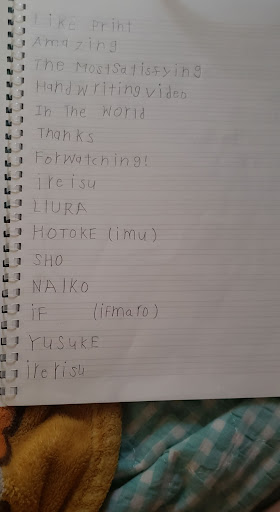 Like Print
Amazing
The MostSatisfying
Handwriting video
In The World
Thanks
Forwatching!
ireisu
LIURA
HOTOKE (imu)
SHO
NAIKO
iF (iFmaro)
YUSUKE
irerisu